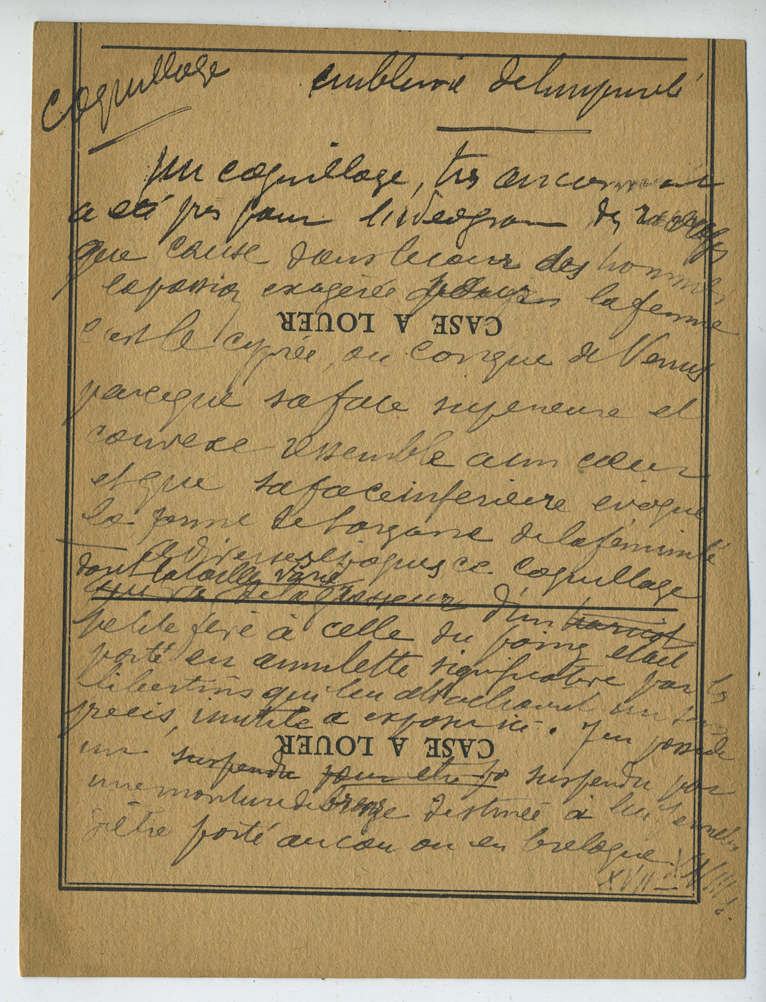 coquillage emblème de l'impureté
Un coquillage, très anciennement
a été pris pour l'idéogramme des ravages
que cause dans le cœur des hommes
la passion exagérée pour la femme
CASE A LOUER
c'est le cyprée, ou conque de Venus
parceque sa face superieure et
convexe ressemble a un cœur
et que sa face inferieure evoque
la forme de l'organe de la féminité
A diverses epoques ce coquillage
dont la taille varie
de la grosseur d'un haricot
petite feve à celle du poing etait
porté en amulette significative par les
libertins qui lui attachaient un sens
precis, inutile a exposer ici. J'en possede
CASE A LOUER
un suspendu pour etre suspendu par
une monture de bronze destinée à lui permettre
d'être porté au cou ou en breloque.
XVII - XVIII s.